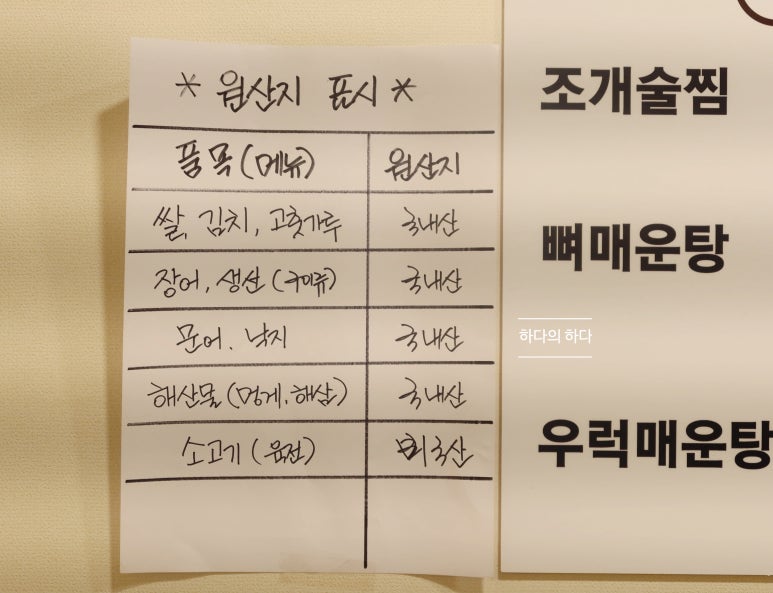 * 원산지 표시 *
품목(메뉴) 원산지
쌀, 김치, 고춧가루 국내산
장어, 생선(류) 국내산
문어. 낙지 국내산
해산물(멍게.해삼) 국내산
소고기(육전) 미국산
조개술찜
뼈매운탕
하다의 하다
우럭매운탕